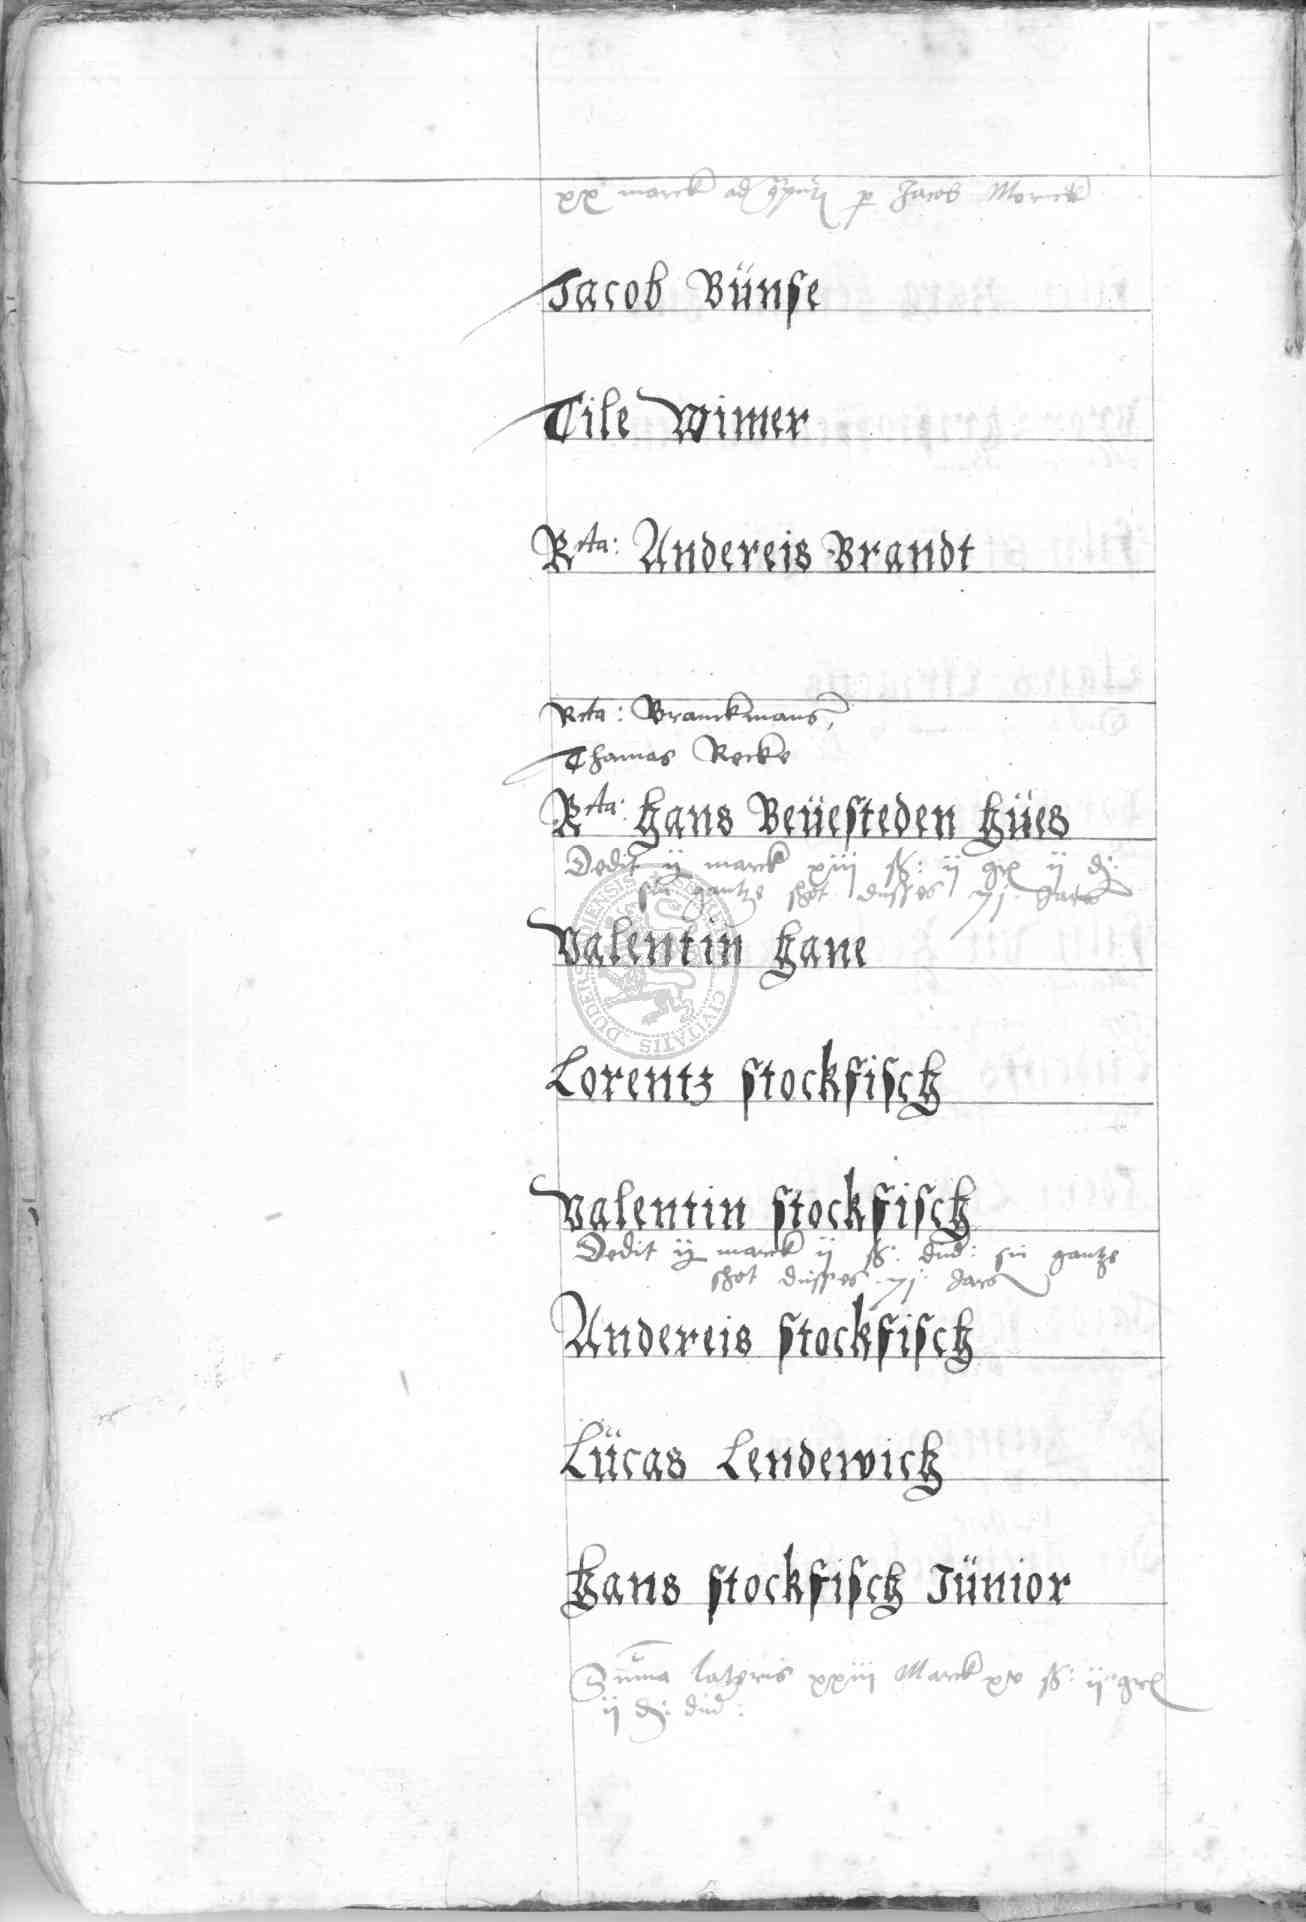 xx marck ad p Jacob Morick
Jacob Bünse
Tile Wimer
Rcta: Andereis Brandt
Rcta: Branckmans
Thamas Recke
Rcta: Hans Beüesteden Hües
Dedit ij marck xiij ß: ij gr ij d:
sin gantze schot dusses yj Jars
Valentin Hane
Lorentz Stockfisch
Valentin Stockfisch
Dedit ij marck ij ß: dud: sin gantze
schot dusses yj: Jars
Andereis Stockfisch
Lücas Lendewich
Hans Stockfisch Jünior
Summa lateris xxiij Marck xv ß: ij gr
ij d: dud:
CIVITATIS